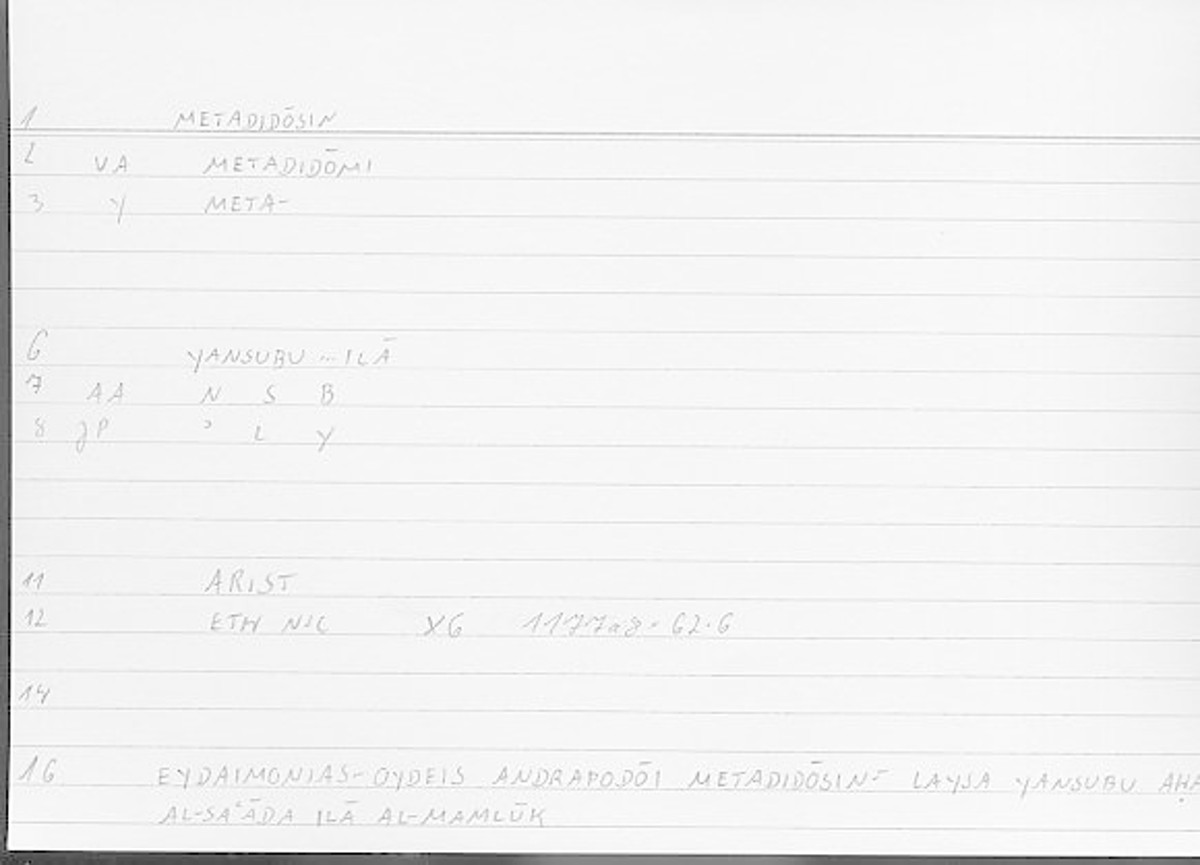 1 METADIDŌSIN
2 VA METADIDŌMI
3 Y META-
6 YANSUBU ... ILĀ
7 AA N S B
8 JP ʾ L Y
11 ARIST
12 ETH NIC X6 1177a8 · 62.6
14
16 EYDAIMONIAS- OYDEIS ANDRAPODŌI METADIDŌSIN- LAYSA YANSUBU AḤA
AL-SAʿĀDA ILĀ AL-MAMLŪK